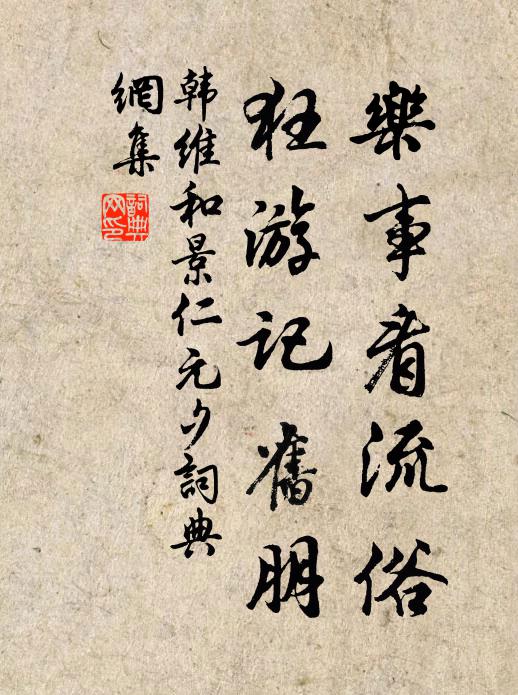 樂事看流俗
狂游记舊朋
韩維和景仁元夕詞典
網集
詞典網印